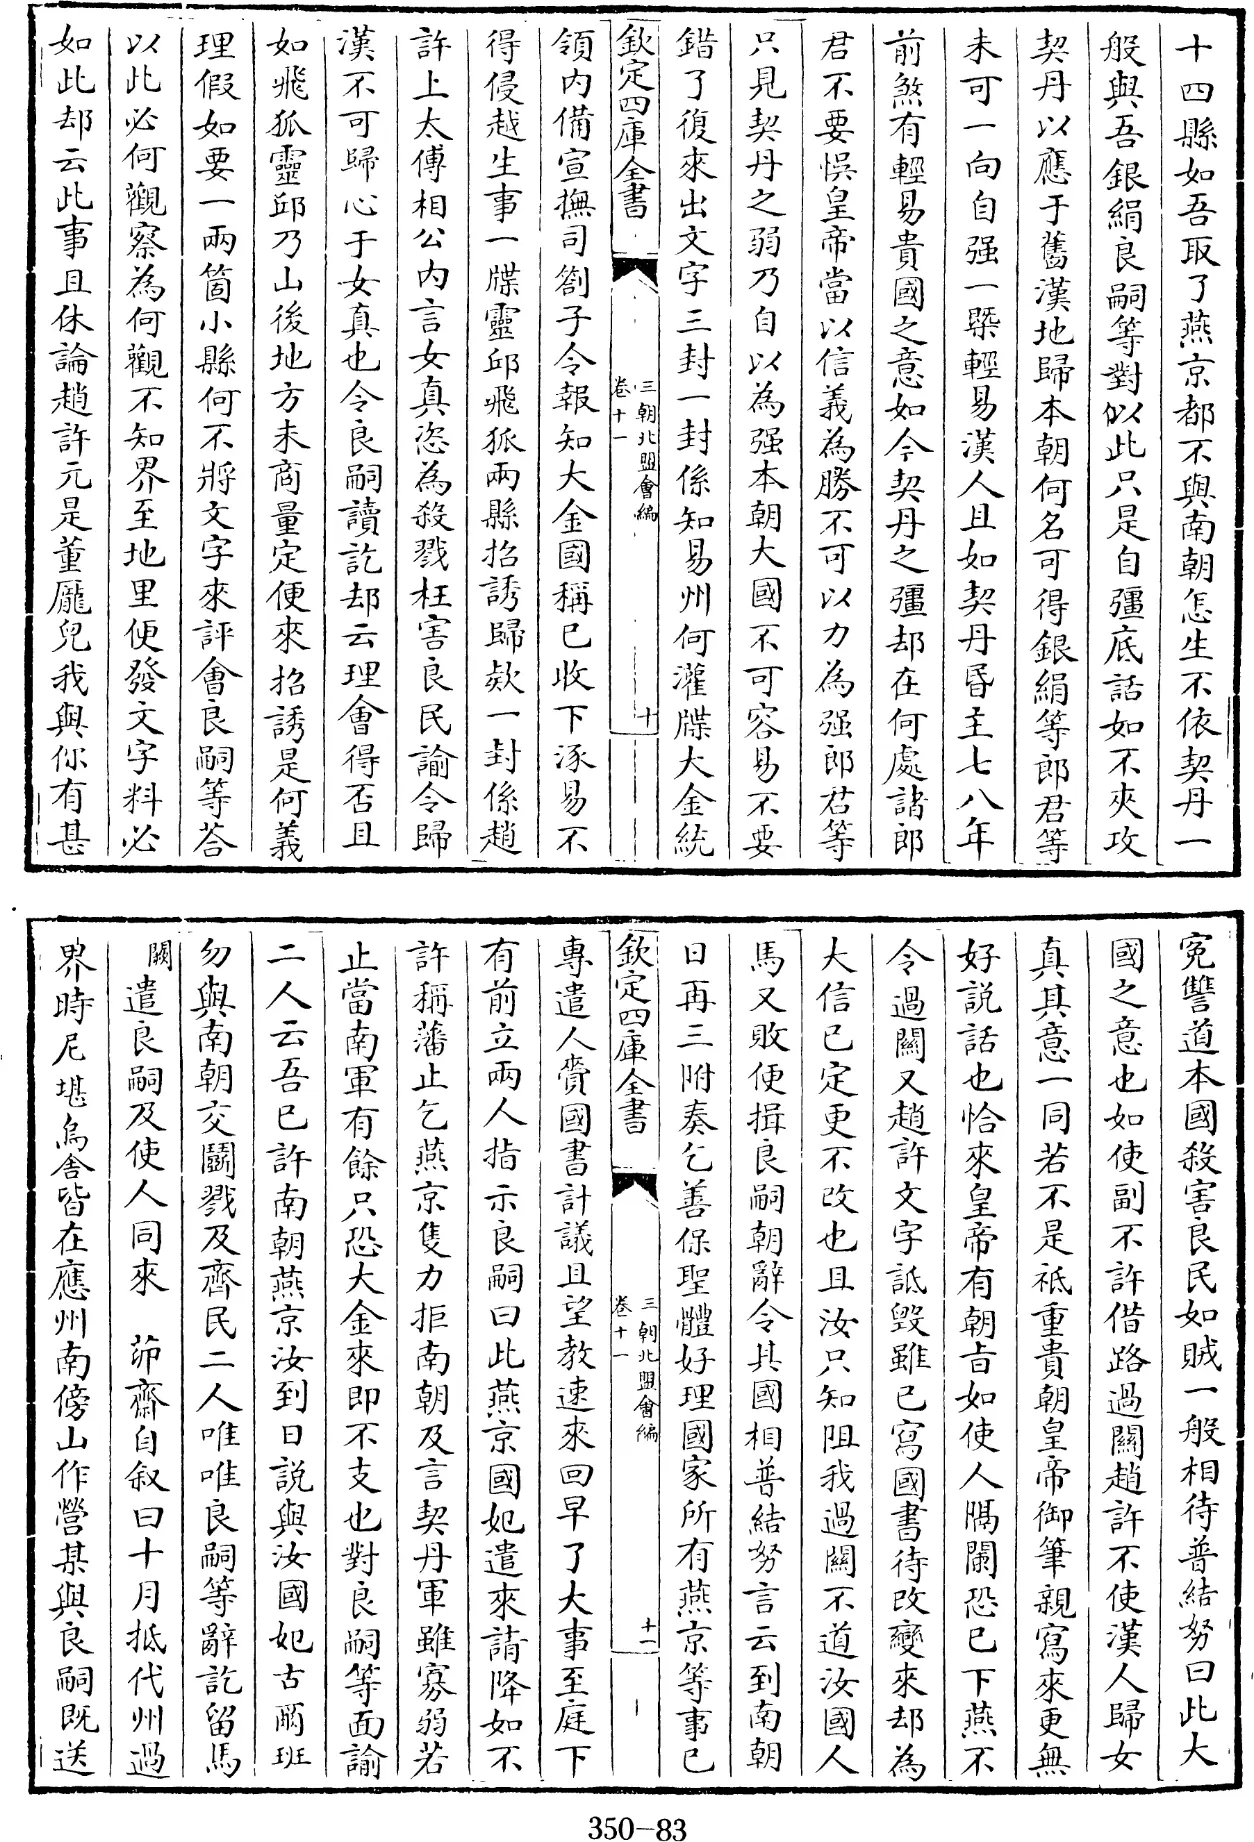 十四縣如吾取了燕京都不與南朝怎生不依契丹一
般與吾銀絹良嗣等對似此只是自彊底話如不夾攻
契丹以應于舊漢地歸本朝何名可得銀絹等郎君等
未可一向自强一槩輕易漢人且如契丹昏主七八年
前煞有輕易貴國之意如今契丹之彊却在何處諸郎
君不要悞皇帝當以信義為勝不可以力為强郎君等
只見契丹之弱乃自以為强本朝大國不可容易不要
錯了復來出文字三封一封係知易州何灌牒大金統
欽定四庫全書
三朝北盟會編
卷十一
十
領内備宣撫司劄子令報知大金國稱已收下涿易不
得侵越生事一牒靈邱飛狐兩縣招誘歸欵一封係趙
許上太傅相公内言女真恣為殺戮枉害良民諭令歸
漢不可歸心于女真也令良嗣讀訖却云理會得否且
如飛狐靈邱乃山後地方未商量定便來招誘是何義
理假如要一兩箇小縣何不將文字來評會良嗣等荅
以此必何觀察為何觀不知界至地里便發文字料必
如此却云此事且休論趙許元是董龎兒我與你有甚
寃讐道本國殺害良民如賊一般相待普結努曰此大
國之意也如使副不許借路過關趙許不使漢人歸女
真其意一同若不是祗重貴朝皇帝御筆親寫來更無
好説話也恰來皇帝有朝㫖如使人隔閡恐已下燕不
令過關又趙許文字詆毀雖已寫國書待改變來却為
大信已定更不改也且汝只知阻我過關不道汝國人
馬又敗便揖良嗣朝辭令其國相普結努言云到南朝
日再三附奏乞善保聖體好理國家所有燕京等事已
欽定四庫全書
三朝北盟會編
卷十一
十一
專遣人賫國書計議且望教速來回早了大事至庭下
有前立兩人指示良嗣曰此燕京國妃遣來請降如不
許稱藩止乞燕京隻力拒南朝及言契丹軍雖寡弱若
止當南軍有餘只恐大金來即不支也對良嗣等面諭
二人云吾已許南朝燕京汝到日説與汝國妃古爾班
勿與南朝交鬭戮及齊民二人唯唯良嗣等辭訖留馬
闕遣良嗣及使人同來　茆齋自叙曰十月抵代州過
界時尼堪烏舍皆在應州南傍山作營某與良嗣既送
350-83